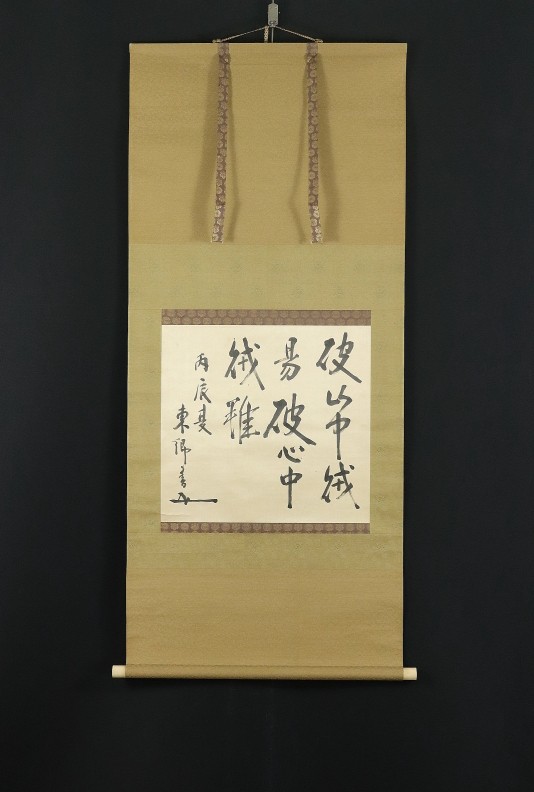 破山中賊
易破心中
賊難
丙辰夏
東郷書